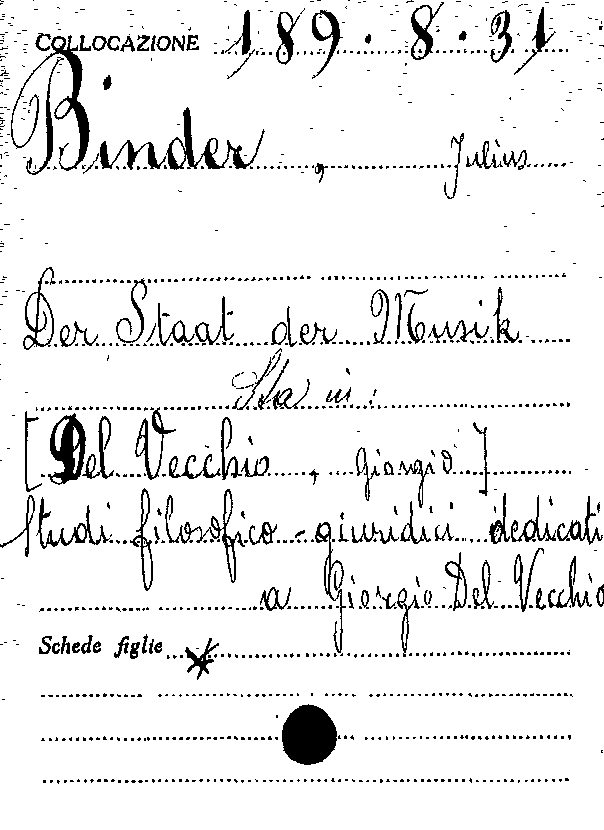 COLLOCAZIONE 189.8.31
Binder, Julius
Der Staat der Musik
Sta in:
[Del Vecchio, Giorgio]
Studi filosofico-giuridici dedicati
a Giorgio Del Vecchio
Schede figlie *